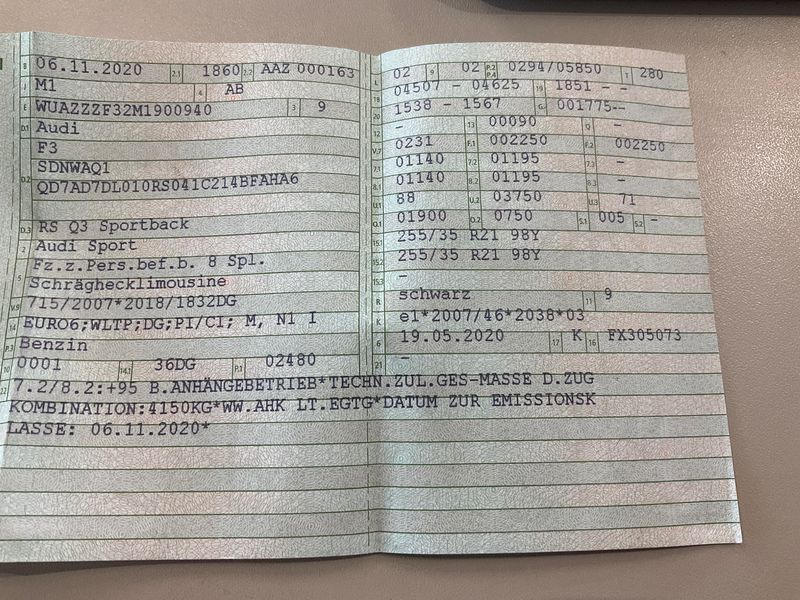 B 06.11.2020 2.1 1860 2.2 AAZ 000163
J M1 4 AB
E WUAZZZF32M1900940 3 9
D.1 Audi
F3
SDNWAQ1
D.2 QD7AD7DL010RS041C214BFAHA6
D.3 RS Q3 Sportback
2 Audi Sport
Fz.z.Pers.bef.b. 8 Spl.
5 Schräghecklimousine
V.9 715/2007*2018/1832DG
14 EURO6;WLTP;DG;PI/CI; M, N1 I
P.3 Benzin
10 0001 14.1 36DG P.1 02480
22 7.2/8.2:+95 B.ANHÄNGEBETRIEB*TECHN.ZUL.GES-MASSE D.ZUG
KOMBINATION:4150KG*WW.AHK LT.EGTG*DATUM ZUR EMISSIONSK
LASSE: 06.11.2020*
L 02 9 02 P.2 P.4 0294/05850 T 280
18 04507 - 04625 19 1851 - -
20 1538 - 1567 G 001775--
12 - 13 00090 Q -
V.7 0231 F.1 002250 F.2 002250
7.1 01140 7.2 01195 7.3 -
8.1 01140 8.2 01195 8.3 -
U.1 88 U.2 03750 U.3 71
O.1 01900 O.2 0750 S.1 005 S.2 -
15.1 255/35 R21 98Y
15.2 255/35 R21 98Y
15.3 -
R schwarz 11 9
K e1*2007/46*2038*03
6 19.05.2020 17 K 16 FX305073
21 -